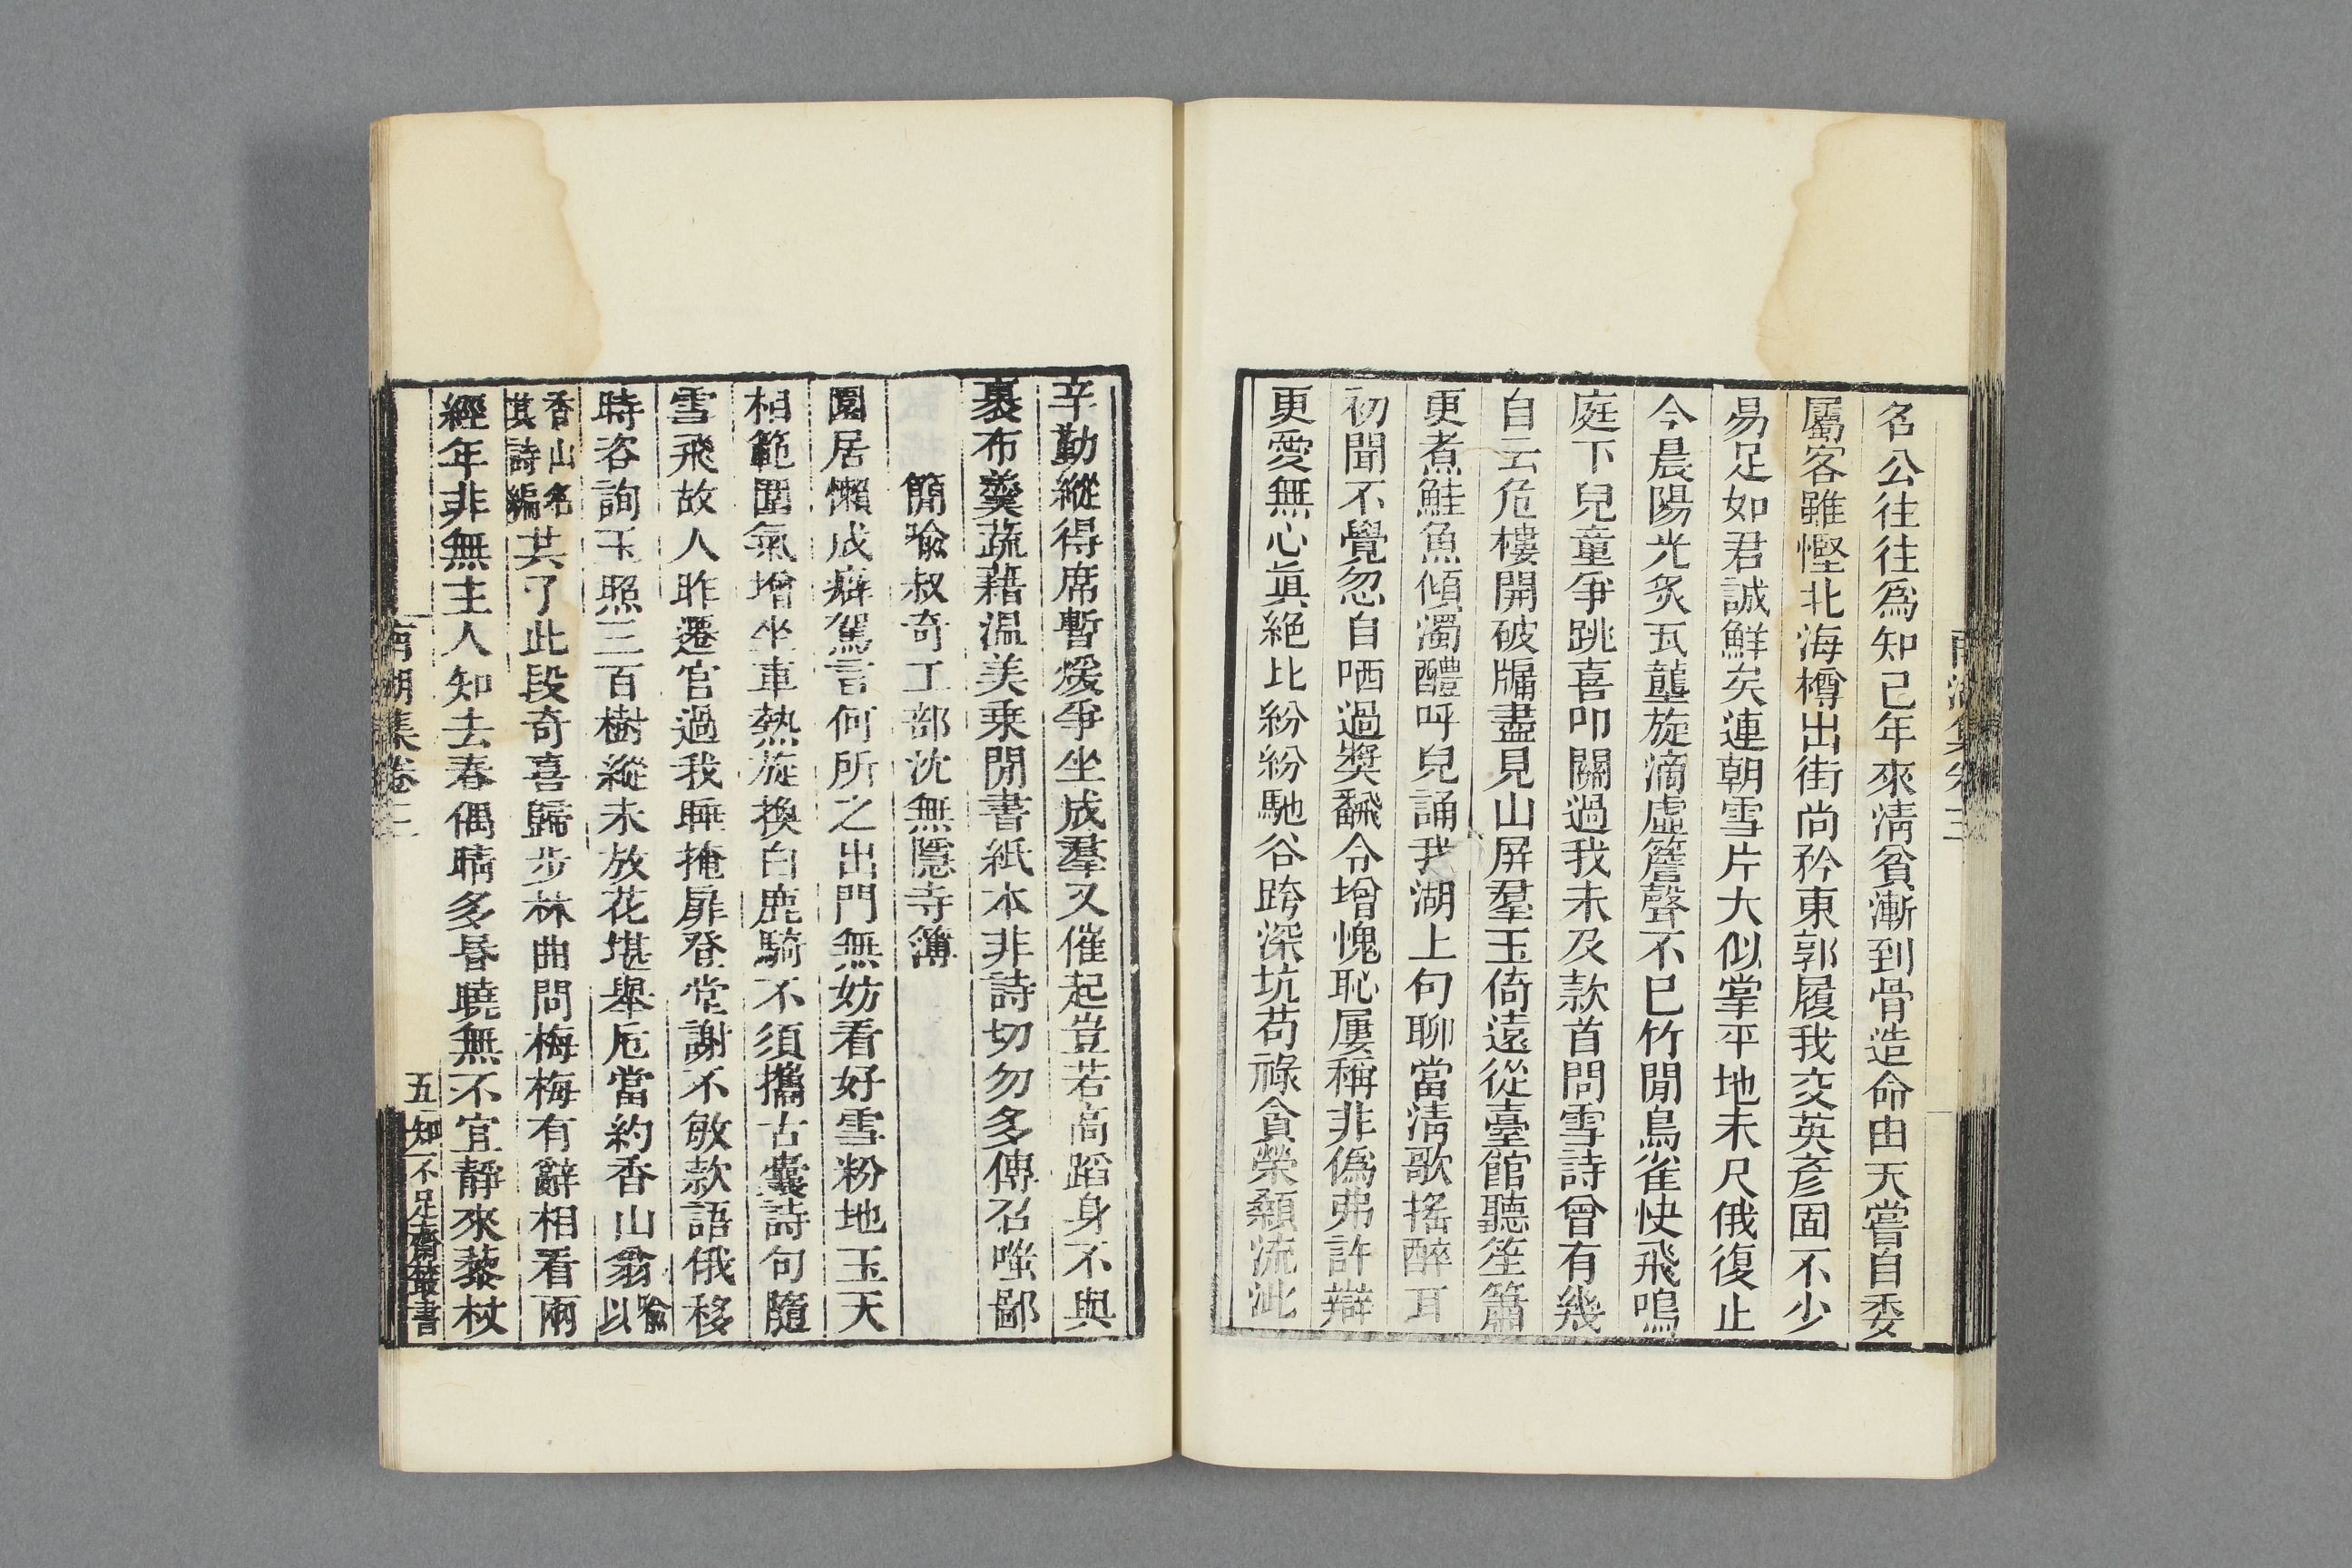 名公往往爲知己年來淸貧漸到骨造命由天嘗自委
屬客雖慳北海樽出街尚矜東郭履我交英彥固不少
易足如君誠鮮矣連朝雪片大似掌平地未尺俄復止
今晨陽光炙瓦壟旋滴虛簷聲不已竹閒鳥雀快飛鳴
庭下兒童爭跳喜叩關過我未及款首問雪詩曾有幾
自云危樓開破牖盡見山屏羣玉倚遠從臺館聽笙簫
更煮鮭魚傾濁醴呼兒誦我湖上句聊當淸歌搖醉耳
初聞不覺忽自哂過奬飜令增愧恥屢稱非僞弗許辯
更愛無心眞絕比紛紛馳谷跨深坑苟祿貪榮顙流泚
辛勤縱得席暫煖爭坐成羣又催起豈若高蹈身不與
裹布羮蔬藉温美乗閒書紙本非詩切勿多傳召嗤鄙
簡喩叔奇工部沈無隱寺簿
園居懶成癖駕言何所之出門無妨看好雪粉地玉天
相範圍氣增坐車熱旋換白鹿騎不須攜古囊詩句隨
雪飛故人昨遷官過我睡掩扉登堂謝不敏款語俄移
時咨詢玉照三百樹縱未放花堪舉卮當約香山翁喩以
香山名其詩編共了此段奇喜歸步林曲問梅梅有辭相看兩
經年非無主人知去春偶晴多昏曉無不宜靜來藜杖
南湖集卷三
五
知不足齋叢書